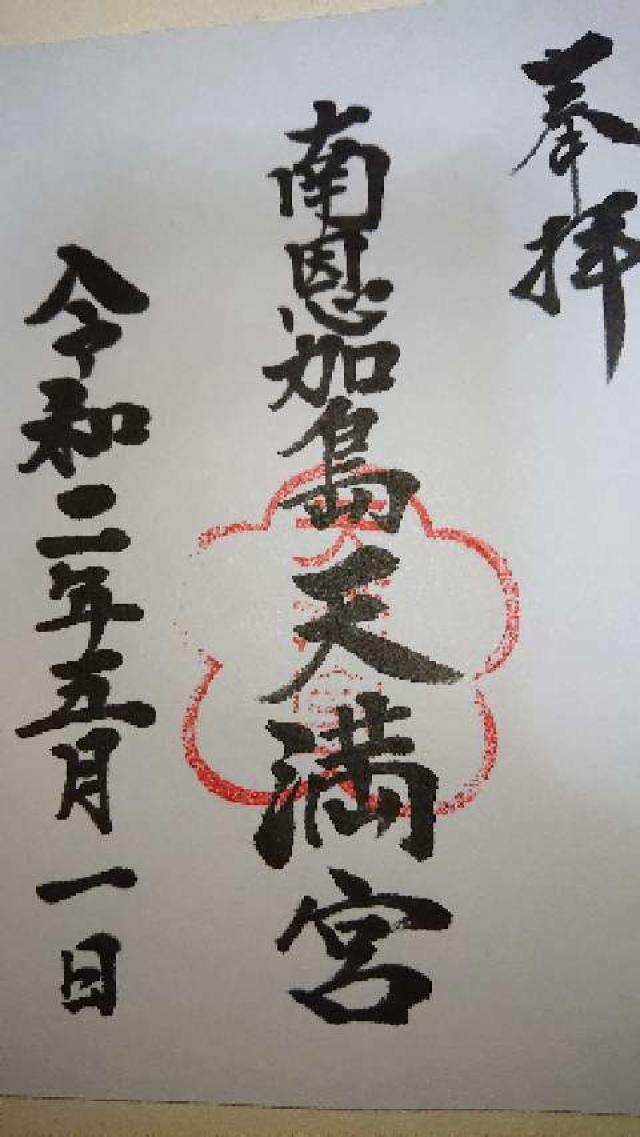 奉拝
南恩加島天満宮
令和二年五月一日